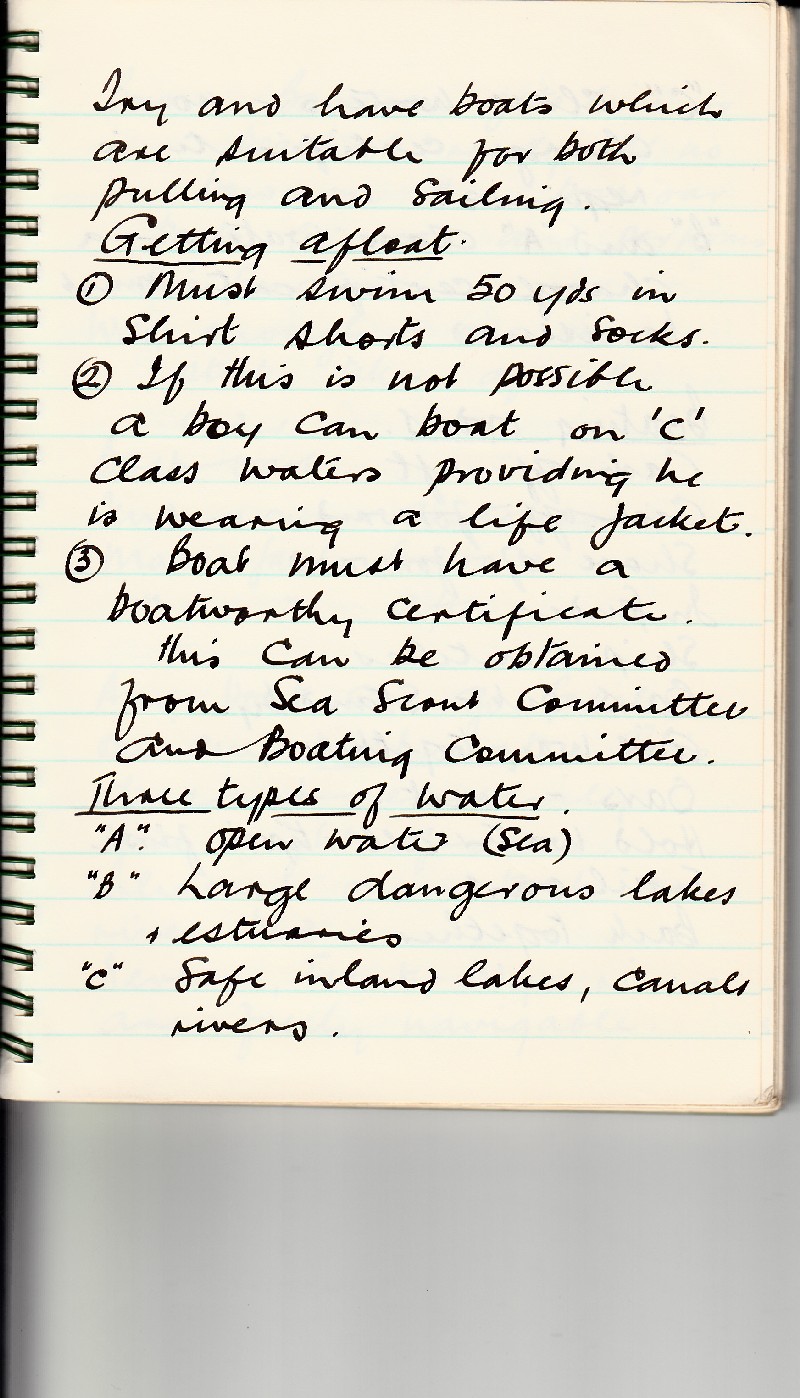 Try and have boats which
are suitable for both
pulling and Sailing.
Getting afloat.
① Must swim 50 yds in
Shirt shorts and Socks.
② If this is not possible
a boy can boat on 'C'
Class waters providing he
is wearing a life jacket.
③ Boat must have a
boatworthy certificate.
this can be obtained
from Sea Scout Committee
and Boating Committee.
Three types of water.
"A". open water (Sea)
"B" Large dangerous lakes
+ estuaries
"C" Safe inland lakes, canals
rivers.